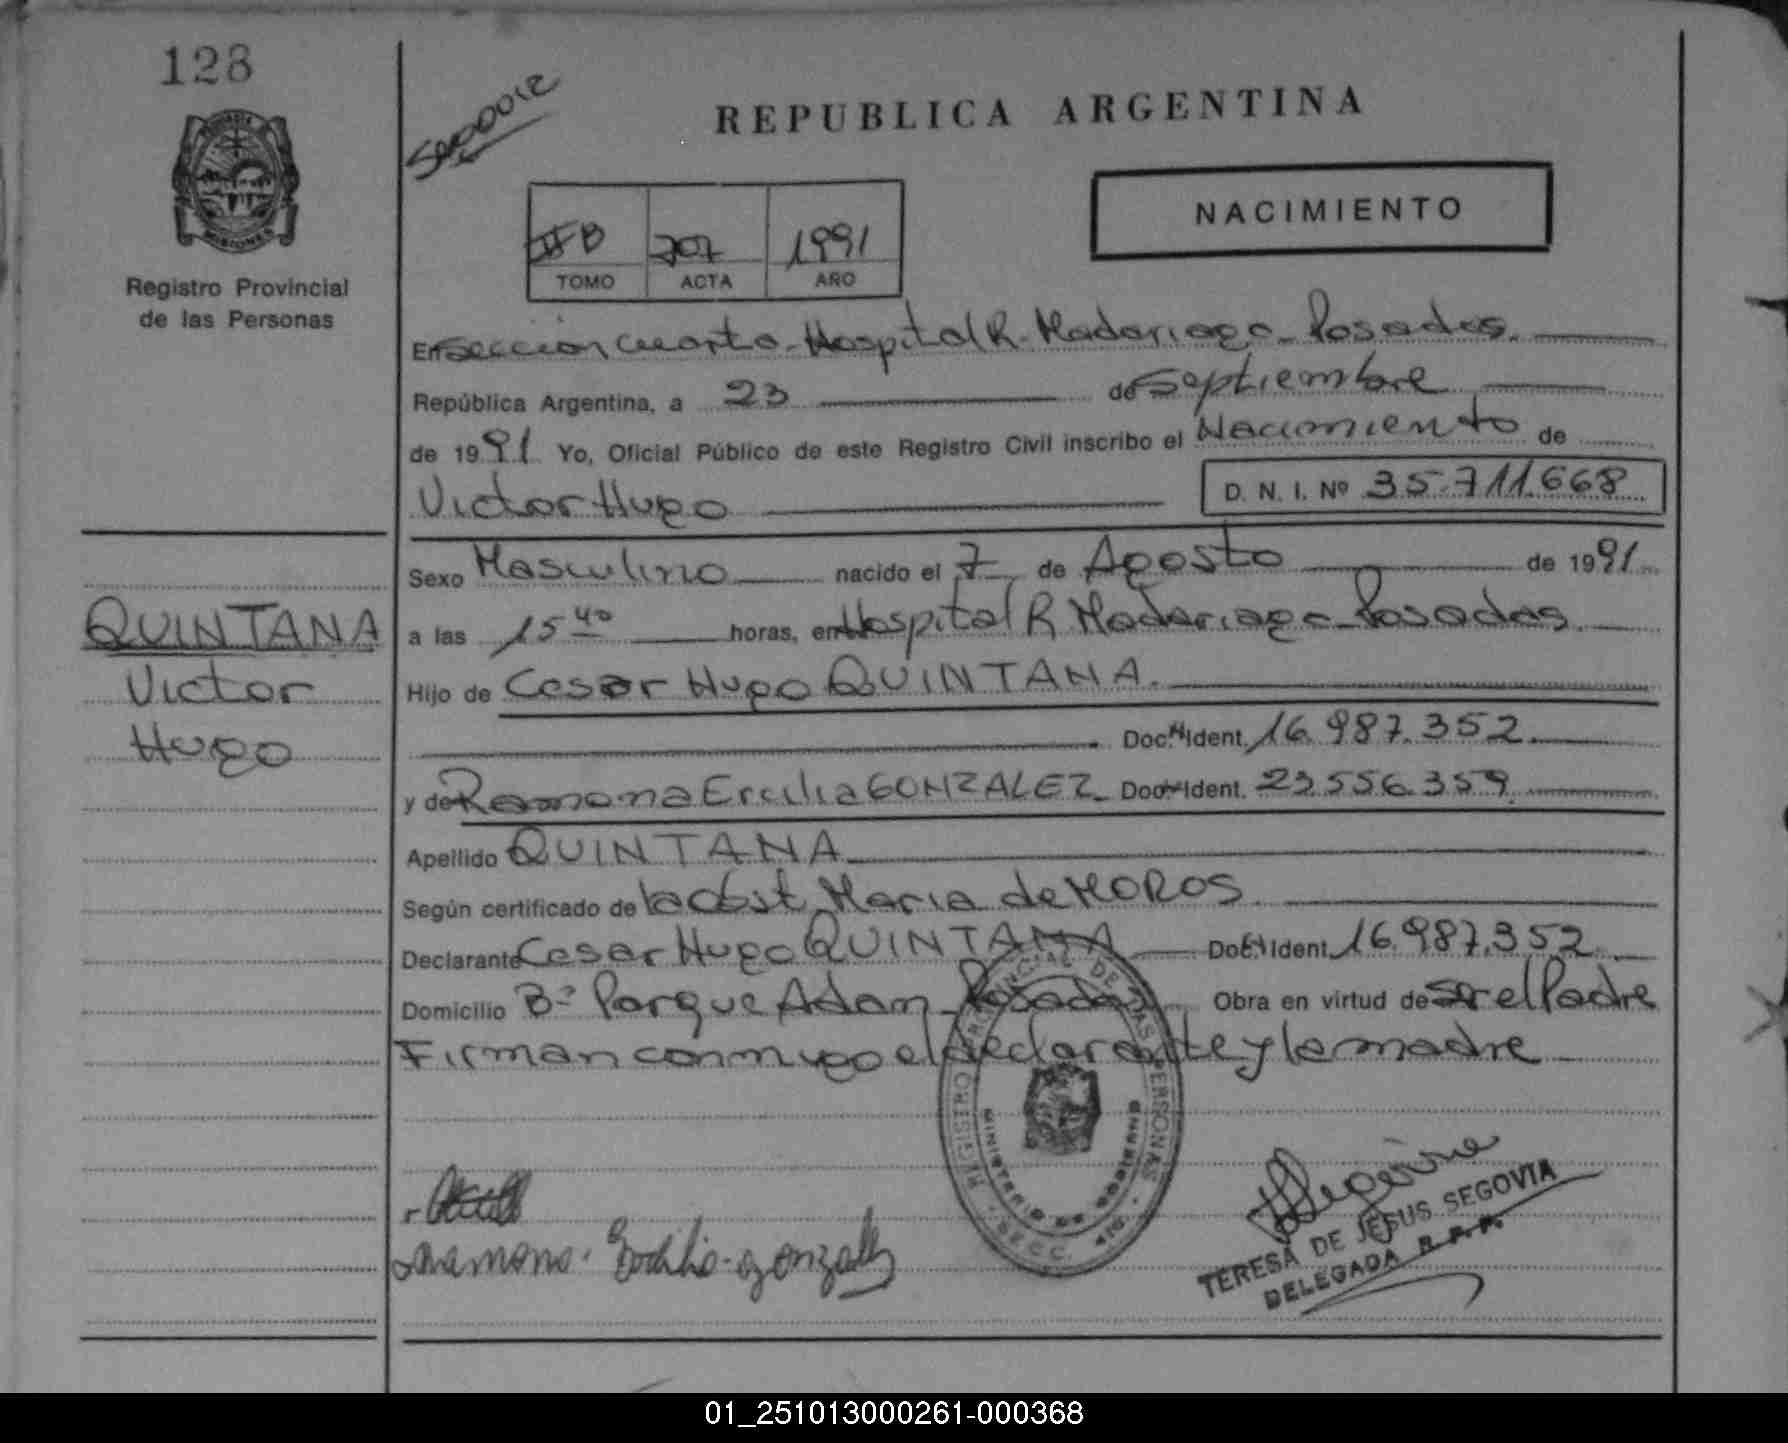 128
REPUBLICA ARGENTINA
NACIMIENTO
PROVINCIA
MISIONES
Registro Provincial
de las Personas
B 707 1991
TOMO ACTA AÑO
En Sección cuarta - Hospital R. Madariaga - Posadas.
República Argentina, a 23 de Septiembre
de 1991 Yo, Oficial Público de este Registro Civil inscribo el Nacimiento de
Victor Hugo D. N. I. Nº 35.711.668
Sexo Masculino nacido el 7 de Agosto de 1991
a las 15 40 horas, en Hospital R Madariaga - Posadas.
Hijo de Cesar Hugo QUINTANA.
Doc. Ident. 16.987.352
y de Ramona Ercilia GONZALEZ Doc. Ident. 23.556.359
Apellido QUINTANA
Según certificado de la Obst. Maria de MOROS
Declarante Cesar Hugo QUINTANA Doc. Ident. 16.987.352
Domicilio Bº Parque Adam - Posadas Obra en virtud de Ser el Padre
Firman conmigo el declarante y la madre
QUINTANA
Victor
Hugo
REGISTRO PROVINCIAL DE LAS PERSONAS
MINISTERIO DE GOBIERNO
ramona. gonzalez
TERESA DE JESUS SEGOVIA
DELEGADA R. P. P.
01_251013000261-000368